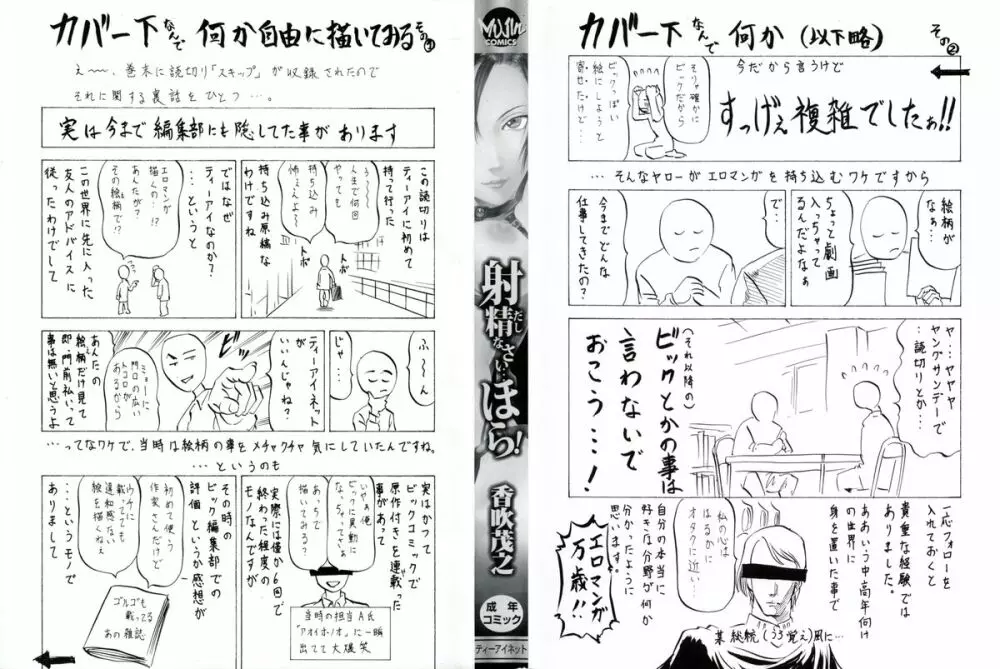 カバー下なんで何か自由に描いてみるその①
え〜、巻末に読切り「スキップ」が収録されたので
それに関する裏話をひとつ…。
実は今まで編集部にも隠してた事があります
この読切りは
ティーアイに初めて
持って行った
う〜
人生で何回
やっても
持ち込み
怖ええよ〜
トボ
トボ
持ち込み原稿な
わけですね
ではなぜ
ティーアイなのか?
…というと
エロマンガ
描くの…!?
あんたが?
その絵柄で!?
この世界に先に入った
友人のアドバイスに
従ったわけでして
ふ〜ん
じゃ…
ティーアイネット
いいんじゃね?
ミョーに
門口の広い
トコロが
あるから
あんたの
絵柄だけ見て
即門前払いって
事は無いと思うよ
…ってなワケで、当時は絵柄の事をメチャクチャ気にしていたんですね。
…というのも
実はかつて
ビックコミックで
原作付きを連載した
事があって
いやぁ俺
ビックに異動に
なっちゃってさぁ
あっちで
描いてみる?
実際には僅か6回で
終わった程度の
モノなんですが
当時の担当A氏
「アオイホノオ」に一瞬
出てて大爆笑
その時の
ビック編集部での
評価というか感想が
初めて使う
作家さんだけど
ウチに
載ってても
違和感ない
絵を描くねぇ
…というモノで
ありまして
ゴルゴも
載ってる
あの雑誌
YUJIN
COMICS
射精なさい ほら!
だし
香吹茂之
成年
コミック
ティーアイネット
カバー下なんで何か(以下略)その②
今だから言うけど
すっげぇ複雑でしたぁ!!
そりゃ確かに
ビックだから
ビックっぽい
絵にしようと
寄せたけど…
…そんなヤローがエロマンガを持ち込むワケですから
絵柄が
なぁ…
ちょっと劇画
入っちゃって
るんだよなぁ
で…
今までどんな
仕事してきたの?
ヤ…ヤヤヤヤ
ヤングサンデーで
読切りとか…
(それ以降の)
ビックとかの事は
言わないで
おこう…!
一応フォローを
入れておくと
貴重な経験では
ありました。
ああいう中高年向け
の世界に
身を置いた事で
私の心は
はるかに
オタクに近い…
自分の本当に
好きな分野が何か
分かったように
思います。
エロマンガ
万歳!!
某総統(うろ覚え)風に…